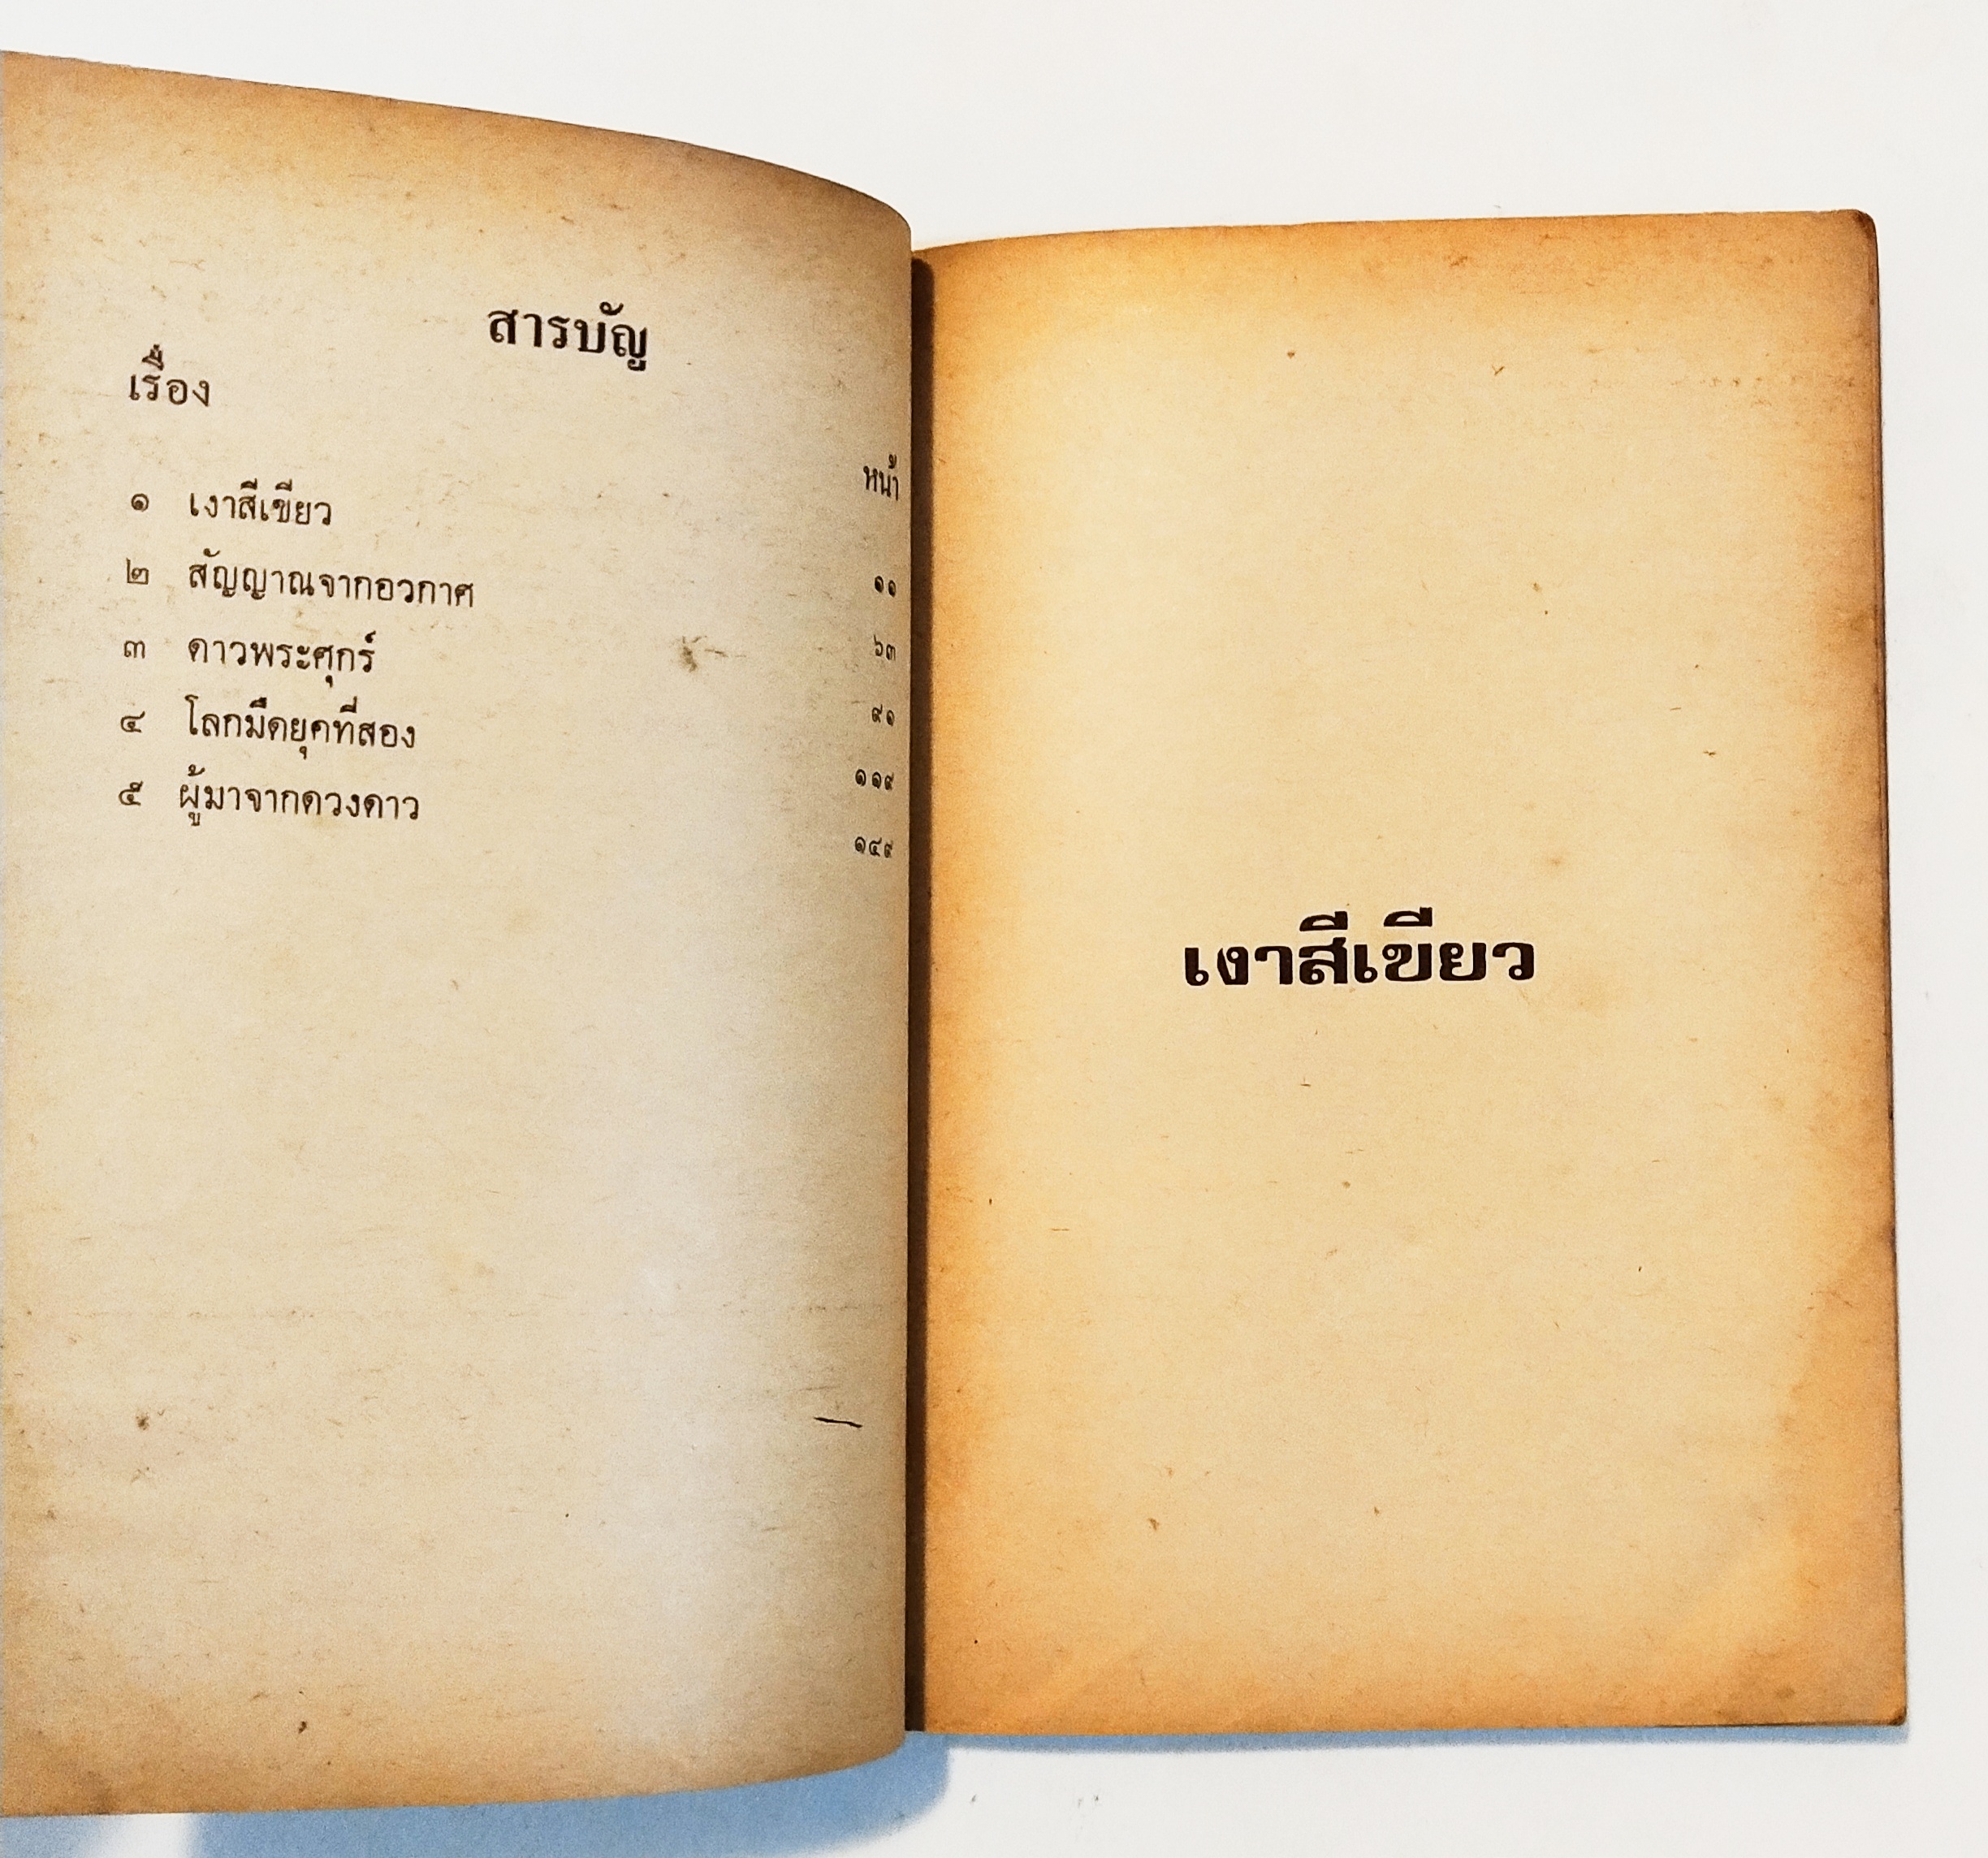 สารบัญ
เรื่อง
หน้า
๑ เงาสีเขียว ๑๑
๒ สัญญาณจากอวกาศ ๖๓
๓ ดาวพระศุกร์ ๙๑
๔ โลกมืดยุคที่สอง ๑๑๙
๕ ผู้มาจากดวงดาว ๑๔๙
เงาสีเขียว